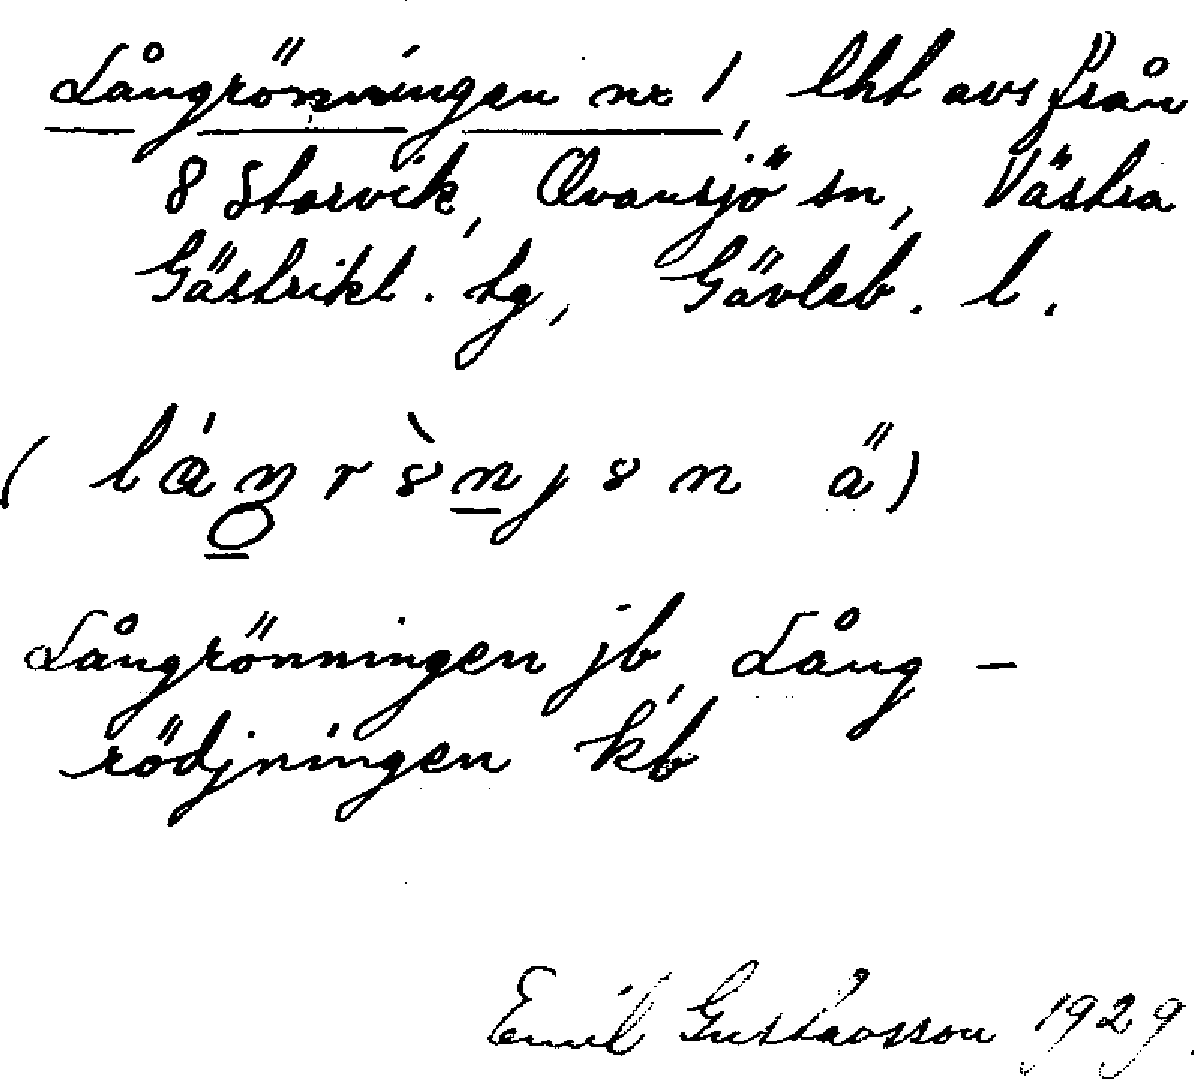 Långrönningen nr 1, lht avs från
8 Storvik, Ovansjö sn, Västra
Gästrikl. tg, Gävleb. l.
Långrönningen jb, Lång-
rödjningen kb
Emil Gustavsson 1929.